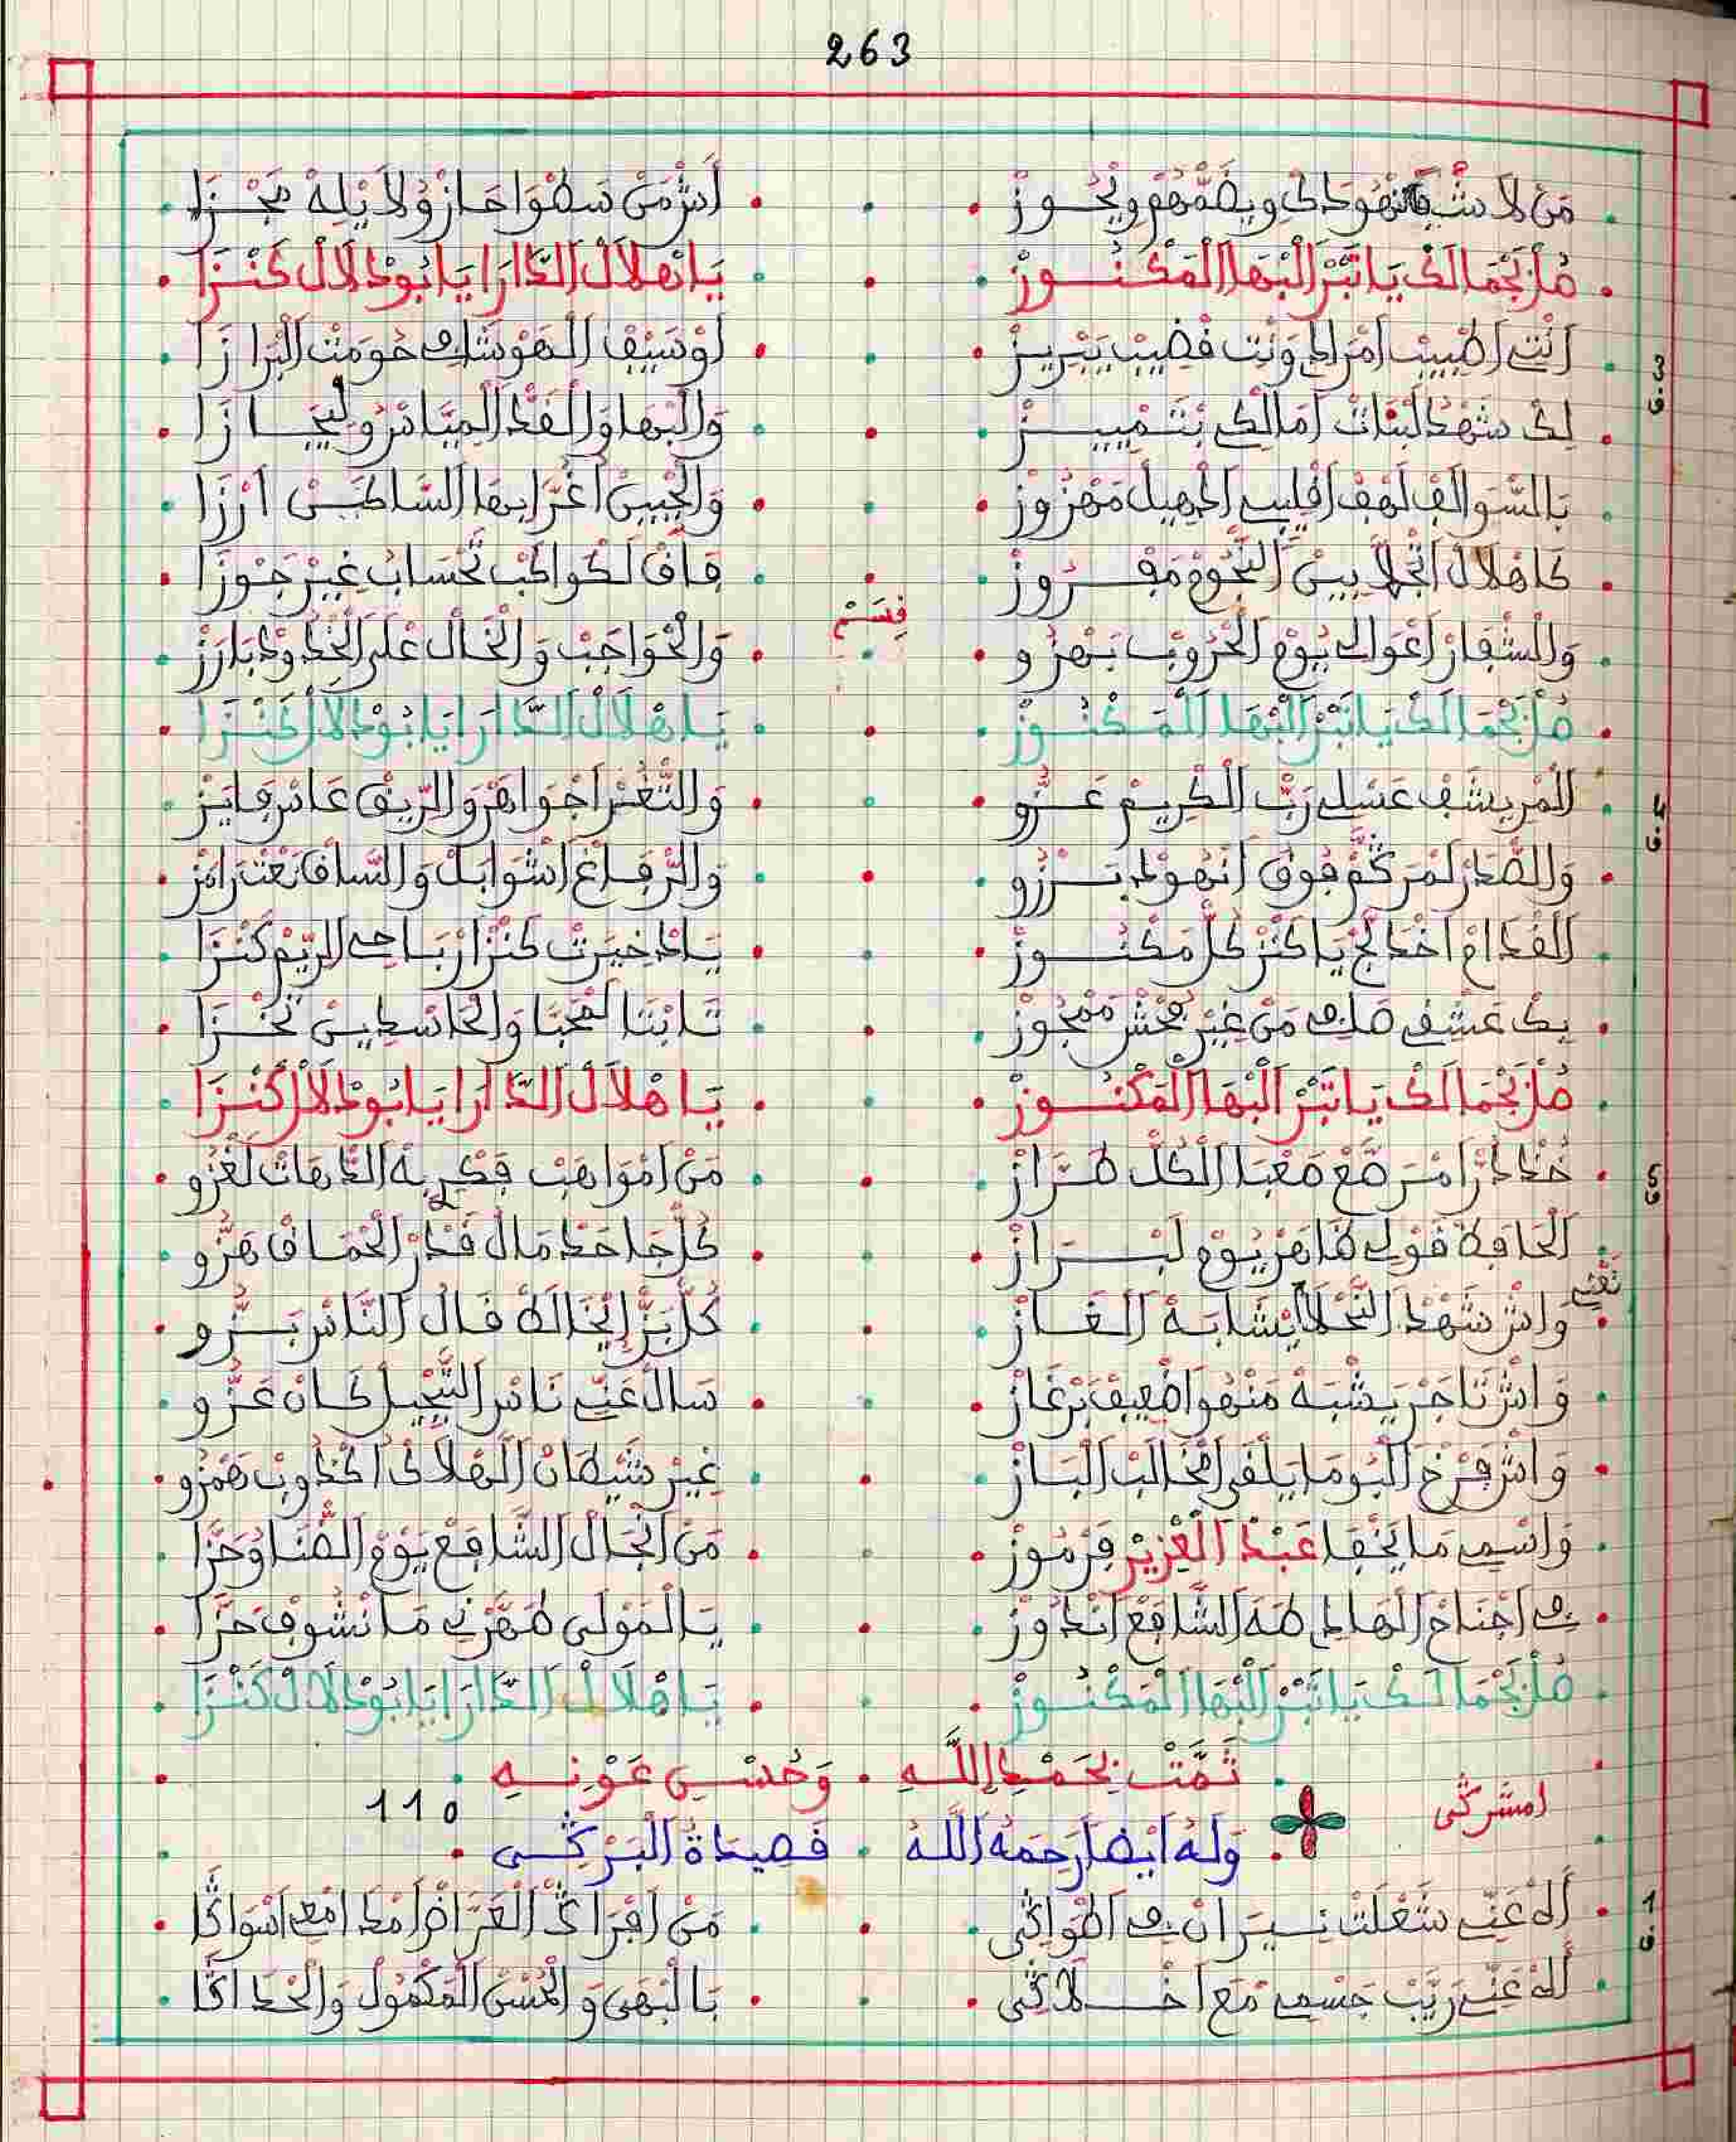 263
مَنْ لَا شْبَهْ نْهُودَكْ ويضَمّهُمْ ويْحُوزْ . أَشْ مَنْ سَطْوَا حَازْ وُلَا يْلِهْ مَجْزَا
مُلْ بَجْمَالَكْ يَا تَبْرْ الْبْهَا الْمَكْنُوزْ . يَا هْلَالْ الدَّارَا يَا بُودْلَالْ كَنْزَا
3.ق
اَنْتِ اطْبِيبْ امْرَاضِي وَنْتِ قْضِيبْ يَبْرِيزْ . اَوْ سَيْفْ الْهَوْشَا فِي حُومَتْ الْبْرَازَا
لِكْ شَهْدْ لَبْنَاتْ اَمَالْكِي بْتَمْيِيزْ . وَالْبْهَا وَالْقَدّ الْمِيَّاسْ وُلِيجَازَا
بَالسَّوَالَفْ لَهْفْ اقْلِيبِي الْجْمِيلْ مَهْزُوزْ . وَالْجْبِينْ اغْرَا بِهَا السَّاطْنِينْ اَرْزَا
كَا هْلَالْ انْجْلَا بِينْ النّْجُومْ مَفْرُوزْ . فَاقْ لَكْوَاكَبْ تَحْسَابْ غِيرْ جَوْزَا
قِسْم
وَالشّْفَارْ اعْوَالِي يُومْ الْحْرُوبْ يَهْزُو . وَالْحْوَاجَبْ وَالْخَالْ عْلَى الْخْدُودْ بَارَزْ
مُلْ بَجْمَالَكْ يَا تَبْرْ الْبْهَا الْمَكْنُوزْ . يَا هْلَالْ الدَّارَا يَا بُودْلَالْ كَنْزَا
4.ق
الْمْرِيشَفْ عَسْلِي رَبّ الْكْرِيمْ عَزُّو . وَالثّْغَرْ اجْوَاهَرْ وَالرِّيقْ عَاسْ فَايَزْ
وَالصّْدَرْ لَمْرَكَّمْ فُوقْ اَنْهُودْ بَرْزُو . وَالرّْفَاغْ اشْوَابَلْ وَالسَّاقْ نَعْتْ رَامَزْ
الْقْدَامْ اخْدَلَّجْ يَا كَنْزْ كُلّ مَكْنُوزْ . يَا دْخِيرَتْ كَنْزْ ارْبَاحِي الرِّيمْ كَنْزَا
بِكْ عَشْقِي صَافِي مَنْ غِيرْ فُحْشْ مَمْجُوزْ . تَابْتَا لَمْحَبَّا وَالْحَاسْدِينْ تَخْزَا
مُلْ بَجْمَالَكْ يَا تَبْرْ الْبْهَا الْمَكْنُوزْ . يَا هْلَالْ الدَّارَا يَا بُودْلَالْ كَنْزَا
5 ق
خُدْ دُرَّا مْرَصَّعْ مَعْبَا الْكُلّ طْرَازْ . مَنْ امْوَاهَبْ فِكْرِيهْ الدَّهَاتْ لَغْزُو
اَلْحَافَظْ قَوْلِي ظَاهَرْ يُومْ لَبْرَازْ . كُلّ جَاحَدْ مَالْ قَدْرْ الْحْمَاقْ هَزُّو
نقتي
وَاشْ شَهْدْ النّْحَلْ اِيشَابَهْ الْغَازْ . كُلّ بَزّْ اِيْخَالَطْ قَالْ النَّاسْ بَزُّو
وَاشْ تَاجَرْ يَشْبَهْ مَنْهُو اضْعِيفْ بَرْغَازْ . سَالْ عَنِّي نَاسْ التَّبْجِيلْ كَانْ عَزُّو
وَاشْ فَرْخْ الْبُومَا يَلْقَى امْخَالَبْ الْبَازْ . غِيرْ شَيْطَانْ الْهْلَاكْ اكْدُوبْ هَمْزُو
وَاسْمِي مَا يَخْفَا عَبْدْ الْعْزِيزْ فَرْمُوزْ . مَنْ انْجَالْ الشَّافَعْ يَوْمْ الضّْنَا وُحَزَّا
فِي اجْنَاحْ الْهَادِي طَهَ الشَّافَعْ اَنْدُوزْ . يَا لْمَوْلَى طَهَّرْنِي مَا نْشُوفْ حَزَّا
مُلْ بَجْمَالَكْ يَا تَبْرْ الْبْهَا الْمَكْنُوزْ . يَا هْلَالْ الدَّارَا يَا بُودْلَالْ كَنْزَا
ثَمَّتْ بِحَمْدِ اللَّهِ . وَحُسْنِ عَوْنِهِ
امشرگي
110
وَلَهُ اَيْضاً رَحِمَهُ اللَّهُ . قَصِيدَةُ الْبَرْكِي
1.ق
اَلَهْ عَنِّي شَعْلَتْ نِيرَانْ فِي اطْوَاكِّي . مَنْ افْرَاكْ الْغْرَاضْ امْدَامْعِي اسْوَاكَّا
اَلَهْ عَنِّي رَيَّبْ جَسْمِي مْعَ اخْلَاكِّي . بَالْبْهَى وَالْحُسْنْ الْمَكْمُولْ وَالْحْدَاكَّا